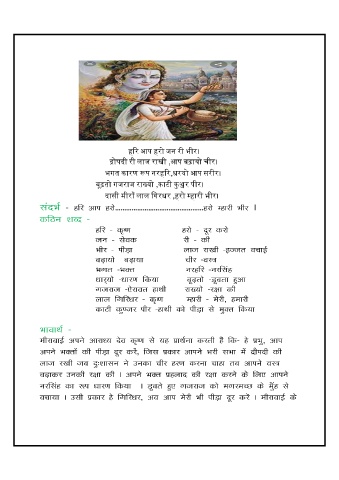 हरि आप हरो जन री भीर।
द्रोपदी री लाज राखी ,आप बढ़ायो चीर।
भगत कारण रूप नरहरि,धरयो आप सरीर।
बूढ़तो गजराज राख्यो ,काटी कुञ्जर पीर।
दासी मीराँ लाल गिरधर ,हरो म्हारी भीर।
संदर्भ - हरि आप हरो..............................................हरो म्हारी भीर ।
कठिन शब्द -
हरि - कृष्ण हरो - दूर करो
जन - सेवक री - की
भीर - पीड़ा लाज राखी -इज्जत बचाई
बढ़ायो -बढ़ाया चीर -वस्त्र
भगत -भक्त नरहरि -नरसिंह
धार्यो -धारण किया बूढ़तो -डूबता हुआ
गजराज -ऐरावत हाथी राख्यों -रक्षा की
लाल गिरिधर - कृष्ण म्हारी - मेरी, हमारी
काटी कुण्जर पीर -हाथी को पीड़ा से मुक्त किया
भावार्थ -
मीराबाई अपने आराध्य देव कृष्ण से यह प्रार्थना करती हैं कि- हे प्रभु, आप
अपने भक्तों की पीड़ा दूर करें, जिस प्रकार आपने भरी सभा में द्रौपदी की
लाज रखी जब दुःशासन ने उनका चीर हरण करना चाहा तब आपने वस्त्र
बढ़ाकर उनकी रक्षा की । अपने भक्त प्रहलाद की रक्षा करने के लिए आपने
नरसिंह का रूप धारण किया । डूबते हुए गजराज को मगरमच्छ के मुँह से
बचाया । उसी प्रकार हे गिरिधर, अब आप मेरी भी पीड़ा दूर करें । मीराबाई के